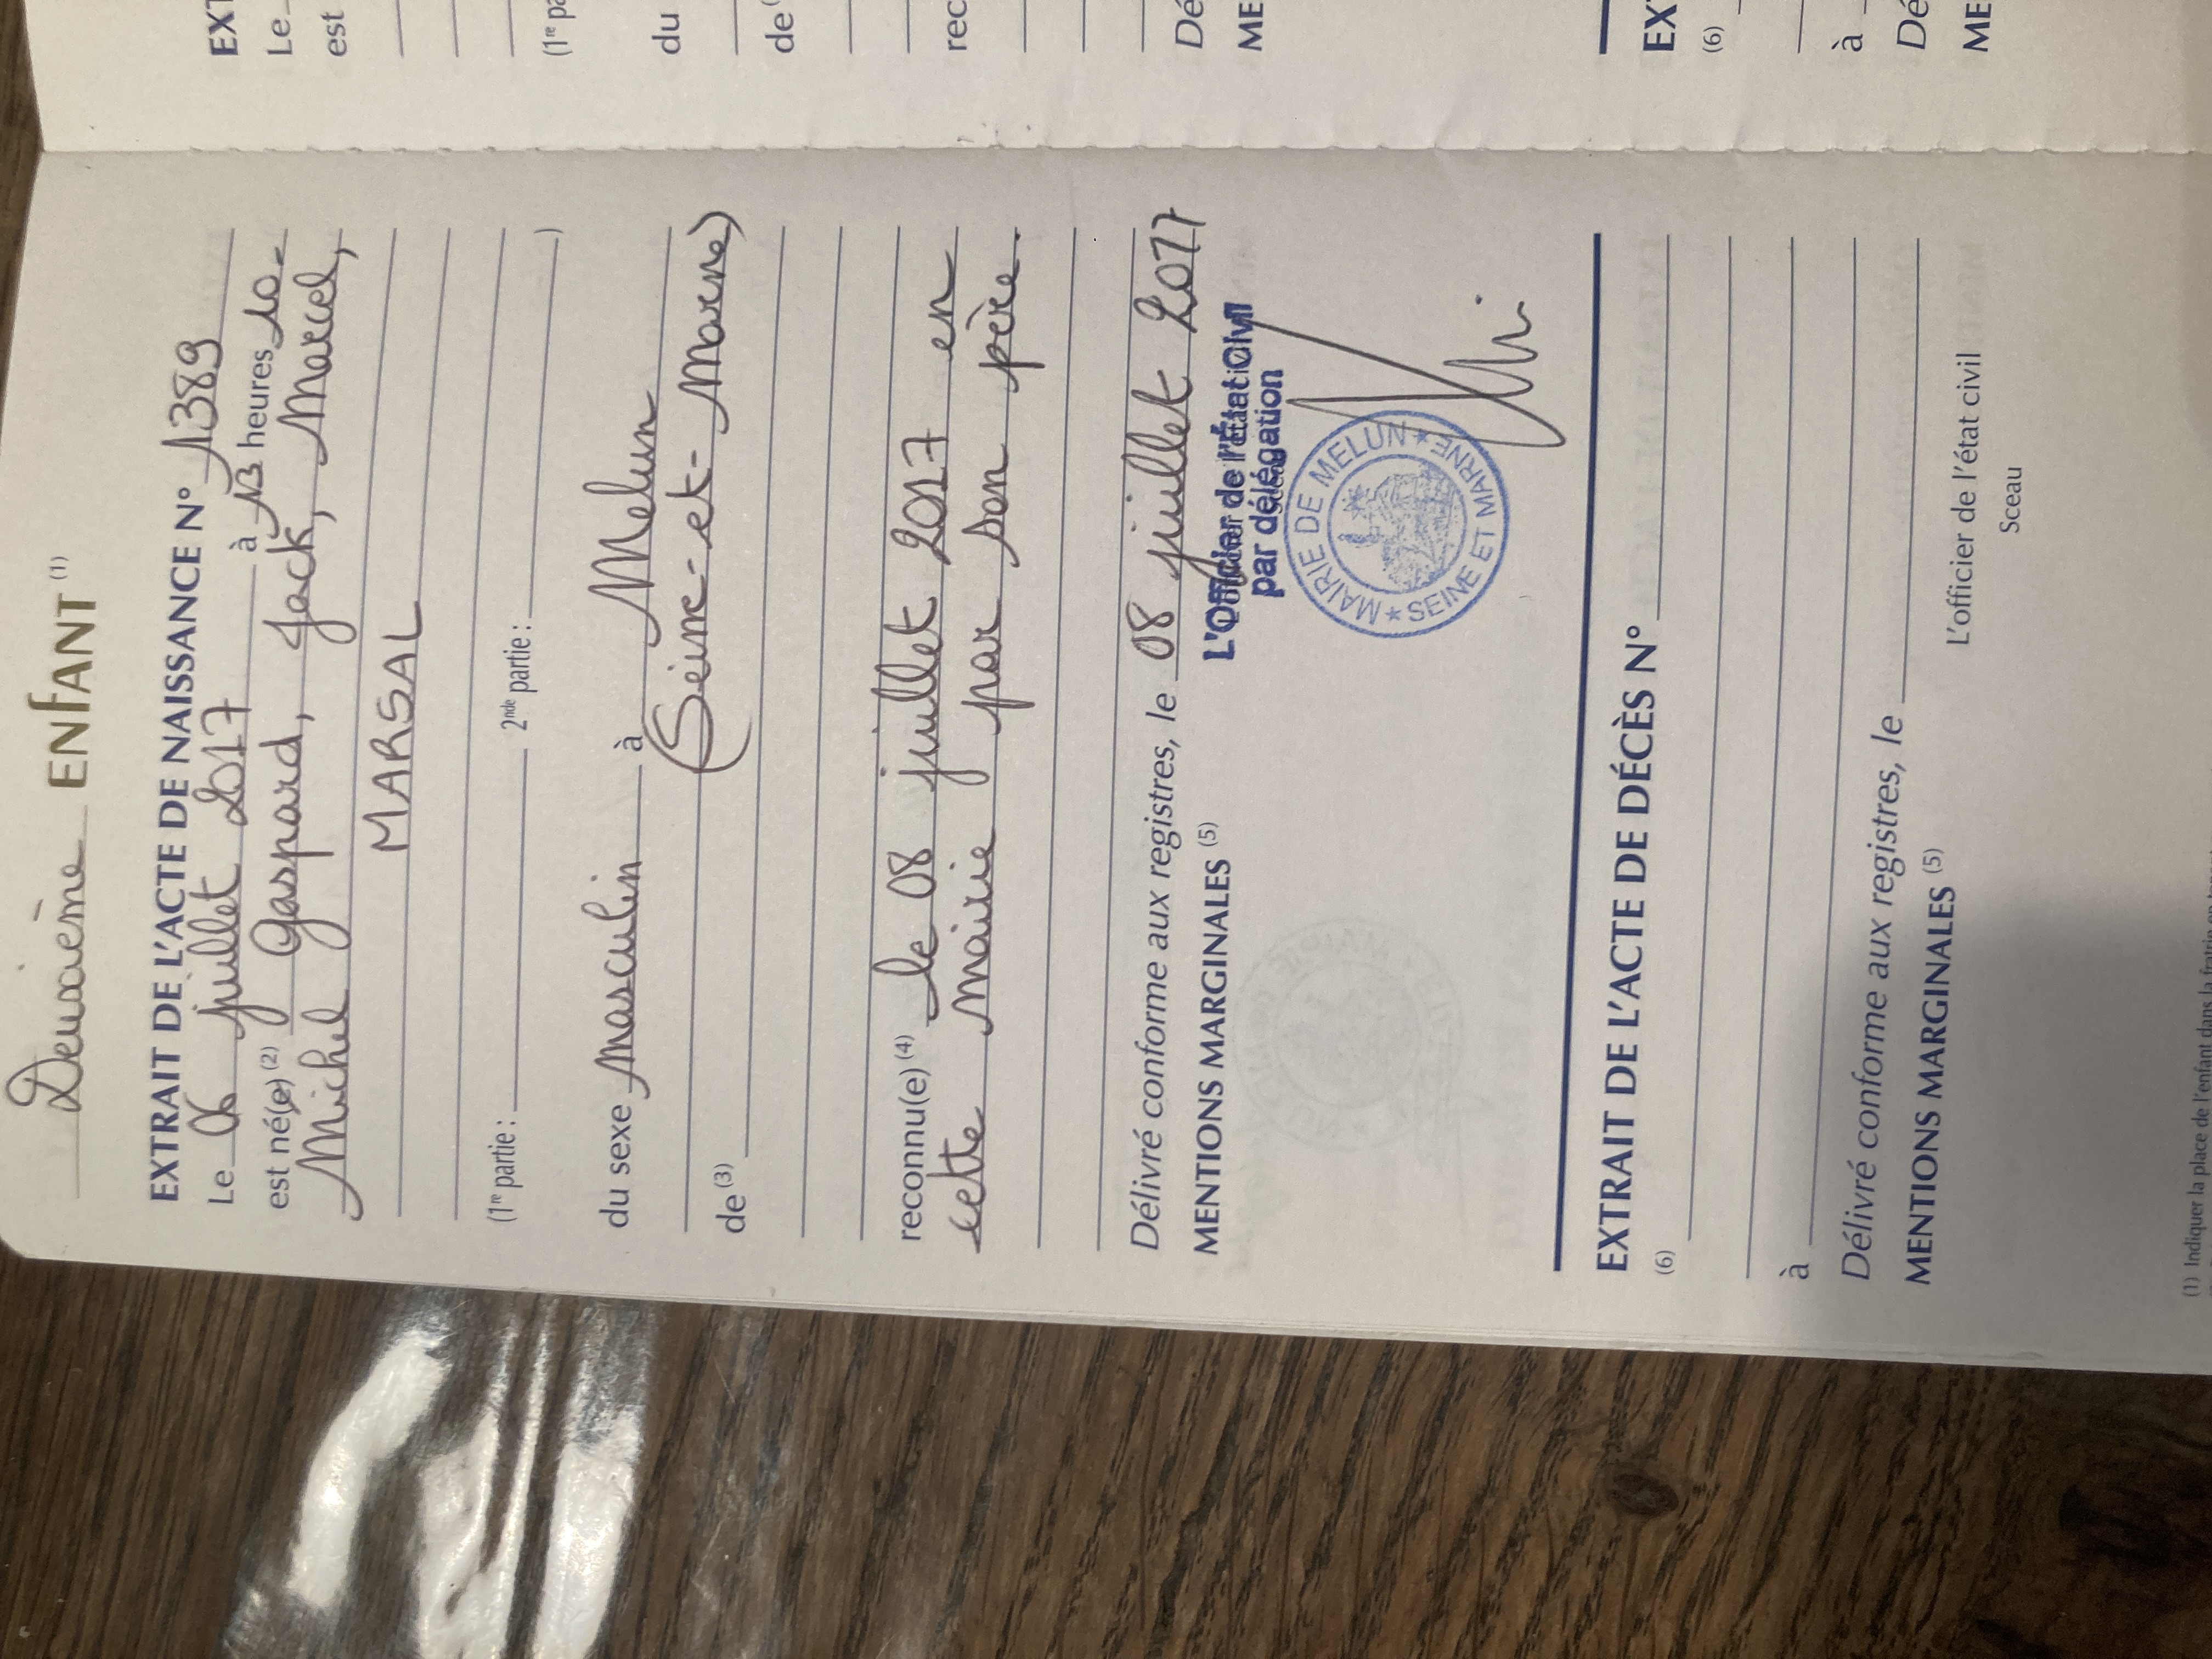 Deuxième ENFANT (1)
EXTRAIT DE L'ACTE DE NAISSANCE N° 1389
Le 06 juillet 2017 à 13 heures 10-
est né(e) (2) Gaspard, Jack, Marcel,
Michel
MARSAL
(1re partie : 2nde partie : )
du sexe masculin à Melun
(Seine-et-Marne)
de (3)
reconnu(e) (4) le 08 juillet 2017 en
cette mairie par son père.
Délivré conforme aux registres, le 08 juillet 2017
MENTIONS MARGINALES (5)
L'Officier de l'État Civil
par délégation
MAIRIE DE MELUN
★ SEINE ET MARNE ★
EXTRAIT DE L'ACTE DE DÉCÈS N°
(6)
à
Délivré conforme aux registres, le
MENTIONS MARGINALES (5)
L'officier de l'état civil
Sceau
(1) Indiquer la place de l'enfant dans la fratrie en
EXT
Le
est
(1re pa
du
de
rec
Dé
ME
EXT
(6)
à
Dé
ME